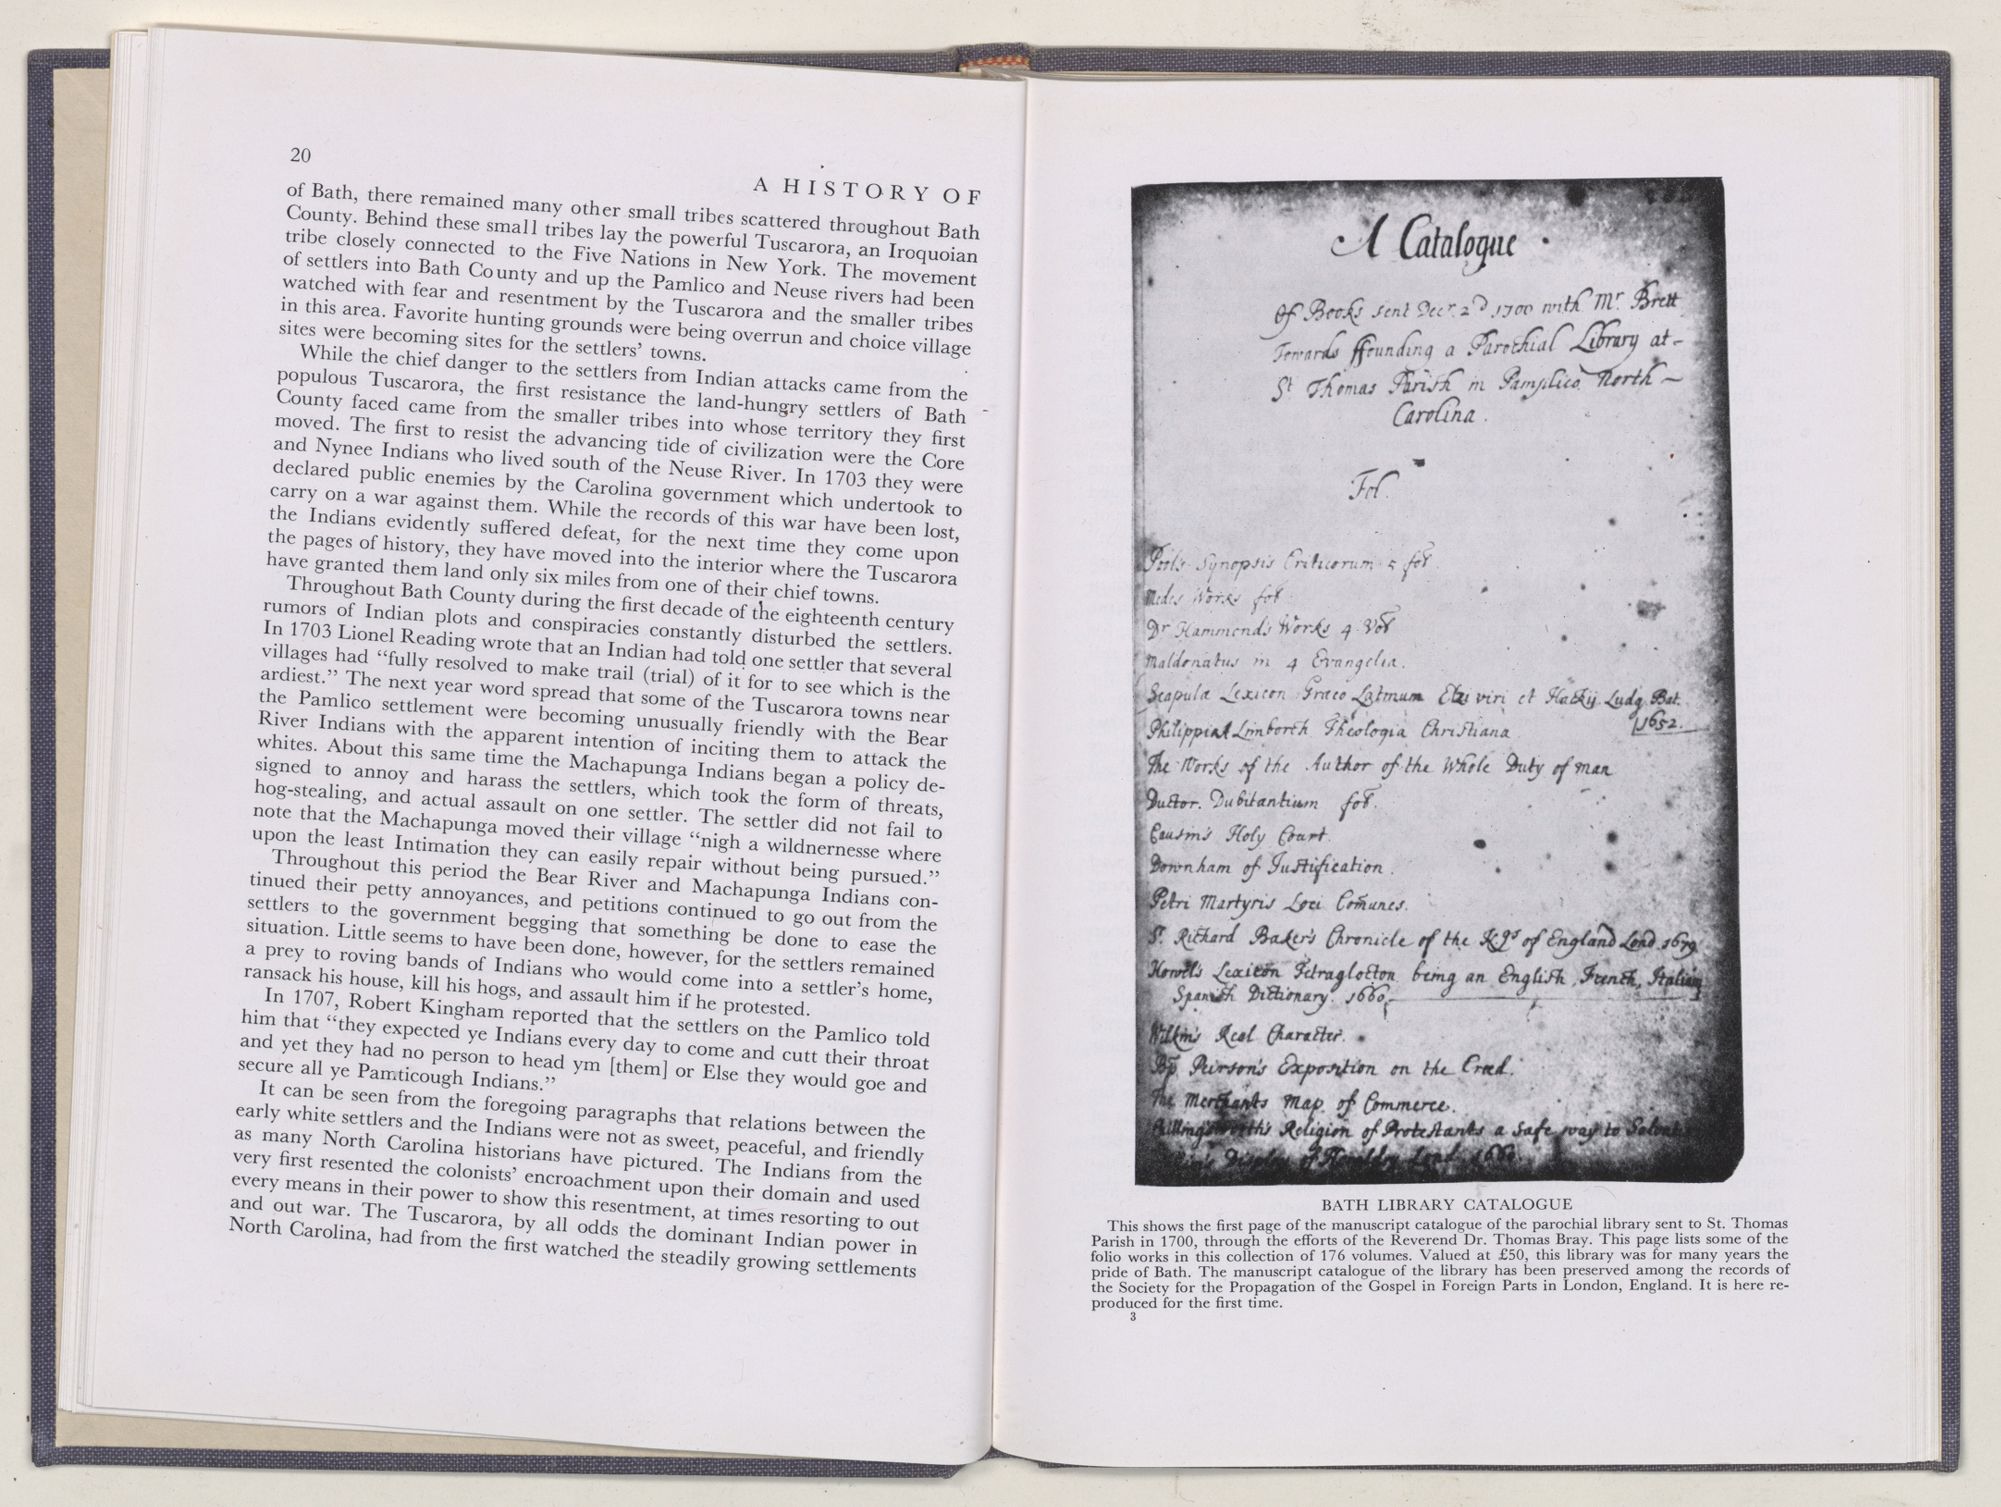 20
A HISTORY OF
of Bath, there remained many other small tribes scattered throughout Bath
County. Behind these small tribes lay the powerful Tuscarora, an Iroquoian
tribe closely connected to the Five Nations in New York. The movement
of settlers into Bath County and up the Pamlico and Neuse rivers had been
watched with fear and resentment by the Tuscarora and the smaller tribes
in this area. Favorite hunting grounds were being overrun and choice village
sites were becoming sites for the settlers' towns.
While the chief danger to the settlers from Indian attacks came from the
populous Tuscarora, the first resistance the land-hungry settlers of Bath
County faced came from the smaller tribes into whose territory they first
moved. The first to resist the advancing tide of civilization were the Core
and Nynee Indians who lived south of the Neuse River. In 1703 they were
declared public enemies by the Carolina government which undertook to
carry on a war against them. While the records of this war have been lost,
the Indians evidently suffered defeat, for the next time they come upon
the pages of history, they have moved into the interior where the Tuscarora
have granted them land only six miles from one of their chief towns.
Throughout Bath County during the first decade of the eighteenth century
rumors of Indian plots and conspiracies constantly disturbed the settlers.
In 1703 Lionel Reading wrote that an Indian had told one settler that several
villages had "fully resolved to make trail (trial) of it for to see which is the
ardiest." The next year word spread that some of the Tuscarora towns near
the Pamlico settlement were becoming unusually friendly with the Bear
River Indians with the apparent intention of inciting them to attack the
whites. About this same time the Machapunga Indians began a policy de-
signed to annoy and harass the settlers, which took the form of threats,
hog-stealing, and actual assault on one settler. The settler did not fail to
note that the Machapunga moved their village "nigh a wildnernesse where
upon the least Intimation they can easily repair without being pursued."
Throughout this period the Bear River and Machapunga Indians con-
tinued their petty annoyances, and petitions continued to go out from the
settlers to the government begging that something be done to ease the
situation. Little seems to have been done, however, for the settlers remained
a prey to roving bands of Indians who would come into a settler's home,
ransack his house, kill his hogs, and assault him if he protested.
In 1707, Robert Kingham reported that the settlers on the Pamlico told
him that "they expected ye Indians every day to come and cutt their throat
and yet they had no person to head ym [them] or Else they would goe and
secure all ye Pamticough Indians."
It can be seen from the foregoing paragraphs that relations between the
early white settlers and the Indians were not as sweet, peaceful, and friendly
as many North Carolina historians have pictured. The Indians from the
very first resented the colonists' encroachment upon their domain and used
every means in their power to show this resentment, at times resorting to out
and out war. The Tuscarora, by all odds the dominant Indian power in
North Carolina, had from the first watched the steadily growing settlements
A Catalogue
Of Books sent Decr. 2d 1700 with Mr. Brett
Towards ffounding a Parochial Library at
St Thomas Parish in Pamplico, North
Carolina.
Fol.
Pool's Synopsis Criticorum 5 fol.
Medes Works fol.
Dr Hammond's Works 4 Vol
Maldonatus in 4 Evangelia.
Scapula Lexicon Graco Latinum Elzi viri et Hackij Ludg. Bat.
1652.
Philippi a Limborch Theologia Christiana
The Works of the Author of the Whole Duty of man
Ductor. Dubitantium fol.
Causin's Holy Court.
Downham of Justification.
Petri Martyris Loci Comunes.
Sr. Richard Baker's Chronicle of the Kgs of England Lond. 1679
Howel's Lexicon Tetraglotton being an English, French, Italian
Spanish Dictionary. 1660.
Wilkin's Real Character.
Bp. Peirson's Exposition on the Creed.
The Merchants Map of Commerce.
Chillingsworth's Religion of Protestants a Safe way to
Display of Heraldry Lond.
BATH LIBRARY CATALOGUE
This shows the first page of the manuscript catalogue of the parochial library sent to St. Thomas
Parish in 1700, through the efforts of the Reverend Dr. Thomas Bray. This page lists some of the
folio works in this collection of 176 volumes. Valued at £50, this library was for many years the
pride of Bath. The manuscript catalogue of the library has been preserved among the records of
the Society for the Propagation of the Gospel in Foreign Parts in London, England. It is here re-
produced for the first time.
3